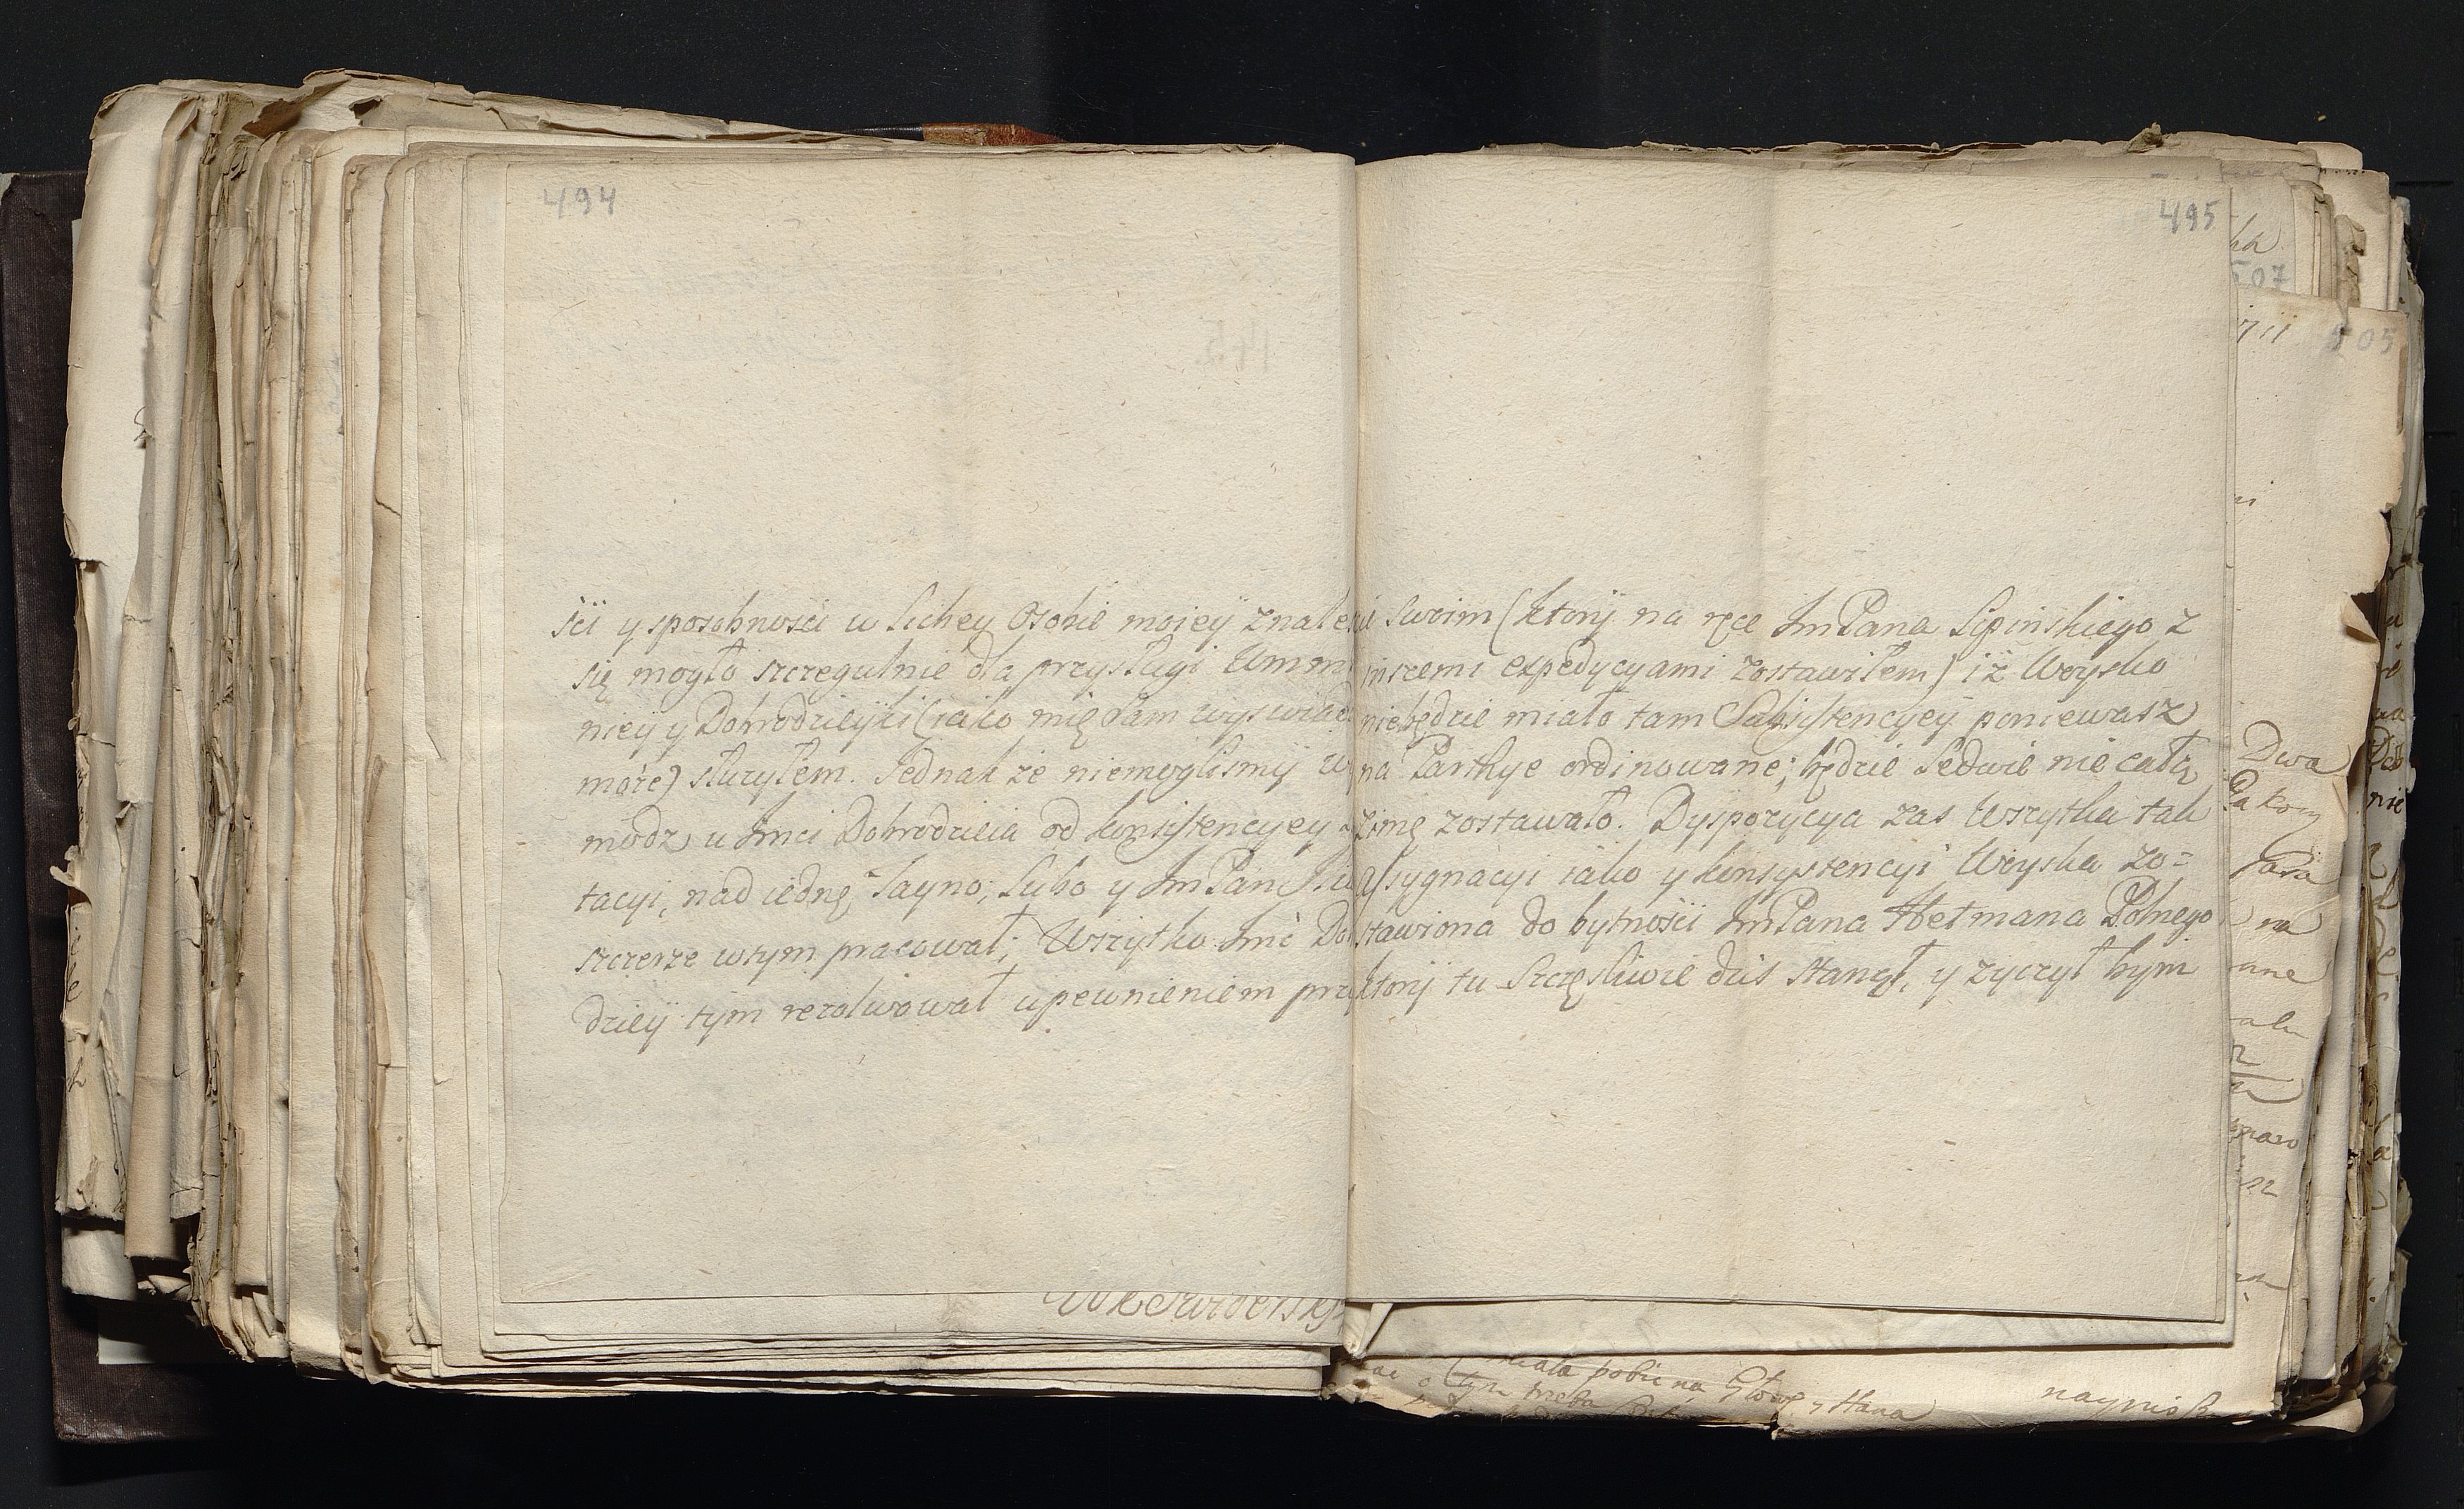 494
ści y sposobności w lichey Osobie moieÿ znale
się mogło szczegulnie dla przysługi Umm
nieÿ y Dobrodzieÿki (iako mię sam wyswiad
może) służyłem. Jednak że niemogliśmÿ w
módz u Jmci Dobrodzieia od konsistencyey
tacyi, nad iednę Łayno, lubo y Jm Pan
szczerze wtym pracował; Wszytko Jmć Do
dzieÿ tÿm rezolwował upewnieniem prz
495
Swoim (ktorÿ na ręce Jm Pana Lipińskiego z
inszemi expedycyami zostawiłem) iż Woysko
niebędzie miało tam Subsistencyeÿ poniewasz
na Parthye ordinowane; będzie ledwie nie całą
zimę zostawało. Dyspozycya zas Wszytka tak
assygnacyi iako y konsystencyi Woyska zo=
stawiona do bytności Jm Pana Hetmana Polnego
ktorÿ tu Szczęsliwie dziś stanął, y zyczył bym
507
505
Dwa
Para
na
miała pobić na Głowę y Hana